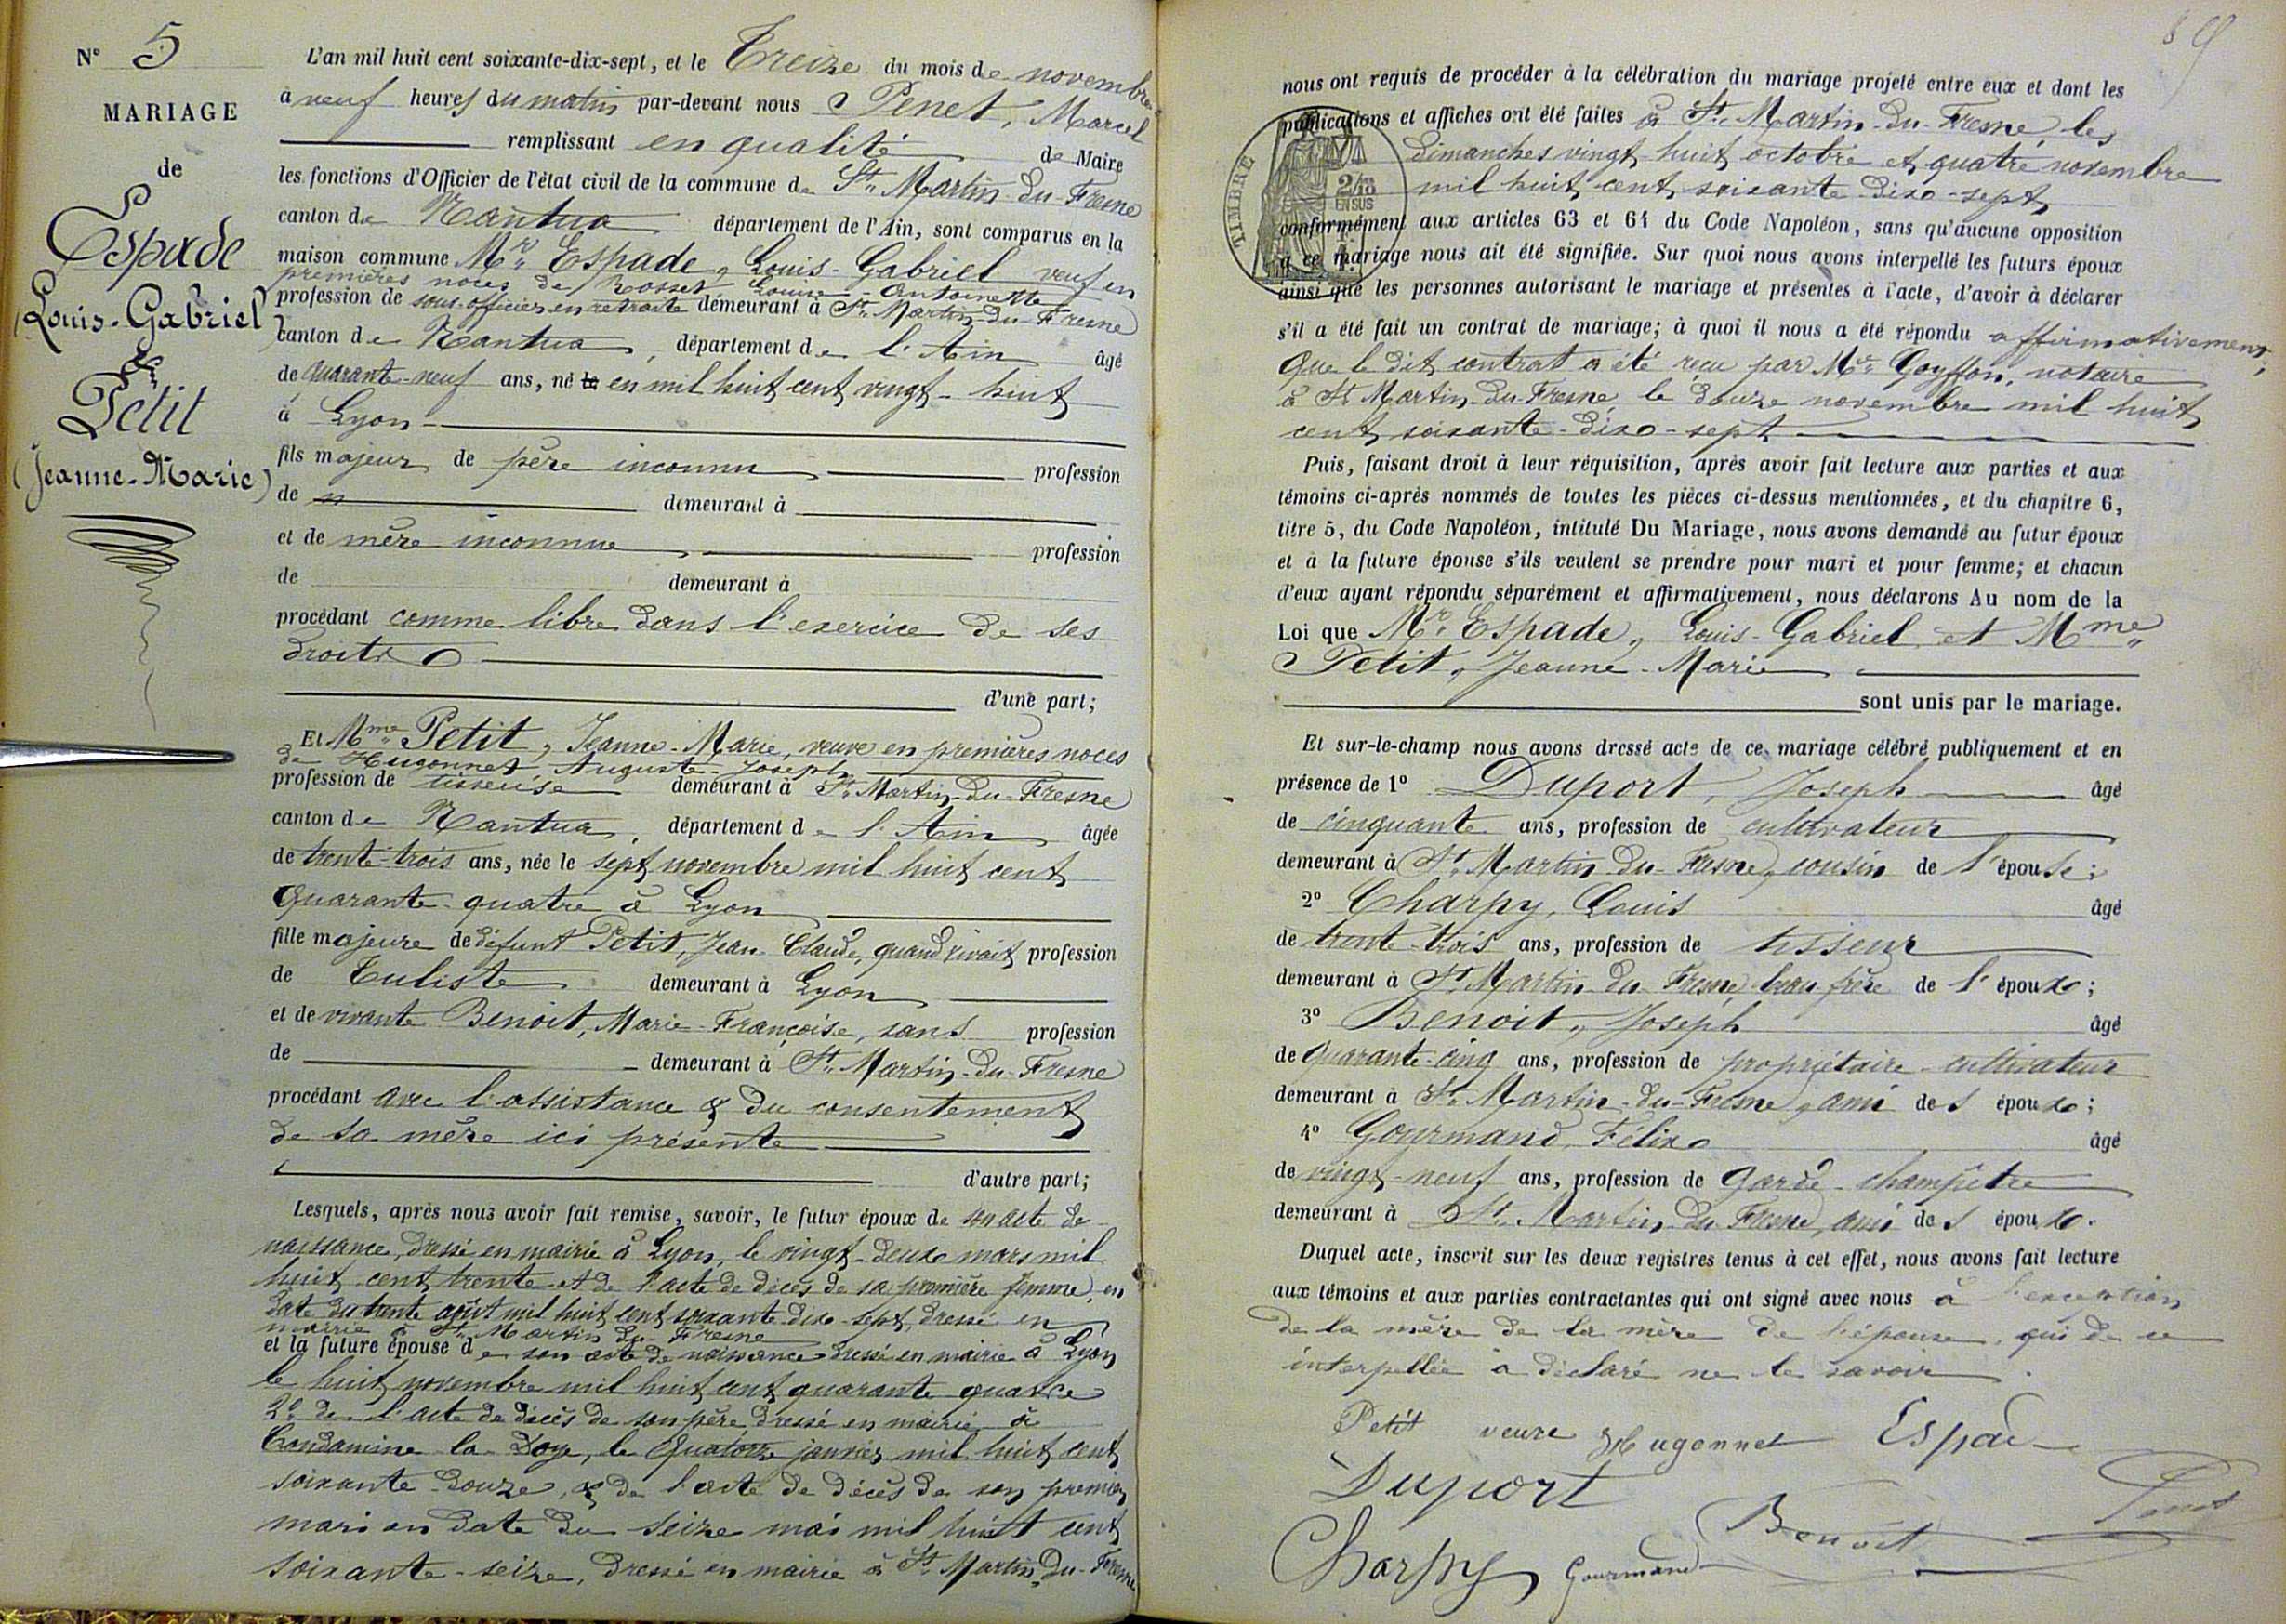 N° 5
MARIAGE
de
Espade
(Louis-Gabriel)
&
Petit
(Jeanne-Marie)
L'an mil huit cent soixante-dix-sept, et le Treize du mois de novembre
à neuf heures du matin par-devant nous Penet, Marcel
remplissant en qualité de Maire
les fonctions d'Officier de l'état civil de la commune de St. Martin-du-Fresne
canton de Nantua département de l'Ain, sont comparus en la
maison commune Mr. Espade, Louis-Gabriel veuf en
premières noces de Rosset Louise-Antoinette
profession de sous-officier en retraite demeurant à St. Martin-du-Fresne
canton de Nantua, département de l'Ain âgé
de quarante-neuf ans, né le en mil huit cent vingt-huit
à Lyon
fils majeur de père inconnu profession
de demeurant à
et de mère inconnue, profession
de demeurant à
procédant comme libre dans l'exercice de ses
droits
d'une part;
Et Mme Petit, Jeanne-Marie, veuve en premières noces
de Hugonnet Auguste-Joseph
profession de tisseuse demeurant à St. Martin-du-Fresne
canton de Nantua, département de l'Ain âgée
de trente-trois ans, née le sept novembre mil huit cent
quarante-quatre à Lyon
fille majeure de défunt Petit, Jean-Claude, quand vivait profession
de Tuliste demeurant à Lyon
et de vivante Benoit, Marie-Françoise, sans profession
de demeurant à St. Martin-du-Fresne
procédant avec l'assistance & du consentement
de sa mère ici présente
d'autre part;
Lesquels, après nous avoir fait remise, savoir, le futur époux de son acte de
naissance, dressé en mairie à Lyon, le vingt-deux mars mil
huit cent trente et de l'acte de décès de sa première femme, en
date du trente août mil huit cent soixante-dix-sept, dressé en
mairie à St. Martin-du-Fresne
et la future épouse de son acte de naissance dressé en mairie à Lyon
le huit novembre mil huit cent quarante quatre
2° de l'acte de décès de son père dressé en mairie à
Condamine-la-Doye, le quatorze janvier mil huit cent
soixante-douze, & de l'acte de décès de son premier
mari en date du seize mai mil huit cent
soixante-seize, dressé en mairie à St. Martin-Du-Fresne
89
nous ont requis de procéder à la célébration du mariage projeté entre eux et dont les
publications et affiches ont été faites à St. Martin-du-Fresne les
dimanches vingt-huit octobre et quatre novembre
mil huit cent soixante-dix-sept
TIMBRE
2/10
EN SUS
conformément aux articles 63 et 64 du Code Napoléon, sans qu'aucune opposition
à ce mariage nous ait été signifiée. Sur quoi nous avons interpellé les futurs époux
ainsi que les personnes autorisant le mariage et présentes à l'acte, d'avoir à déclarer
s'il a été fait un contrat de mariage; à quoi il nous a été répondu affirmativement,
Que le dit contrat a été reçu par Me. Goyffon, notaire
à St. Martin-du-Fresne le douze novembre mil huit
cent soixante-dix-sept
Puis, faisant droit à leur réquisition, après avoir fait lecture aux parties et aux
témoins ci-après nommés de toutes les pièces ci-dessus mentionnées, et du chapitre 6,
titre 5, du Code Napoléon, intitulé Du Mariage, nous avons demandé au futur époux
et à la future épouse s'ils veulent se prendre pour mari et pour femme; et chacun
d'eux ayant répondu séparément et affirmativement, nous déclarons Au nom de la
Loi que Mr. Espade, Louis-Gabriel et Mme
Petit, Jeanne-Marie
sont unis par le mariage.
Et sur-le-champ nous avons dressé acte de ce mariage célébré publiquement et en
présence de 1° Duport, Joseph âgé
de cinquante ans, profession de cultivateur
demeurant à St. Martin-du-Fresne, cousin de l'épouse;
2° Charpy, Louis âgé
de trente-trois ans, profession de tisseur
demeurant à St. Martin-du-Fresne, beau frère de l'époux;
3° Benoit, Joseph âgé
de quarante-cinq ans, profession de propriétaire-cultivateur
demeurant à St. Martin-du-Fresne, ami des époux;
4° Gourmand, Félix âgé
de vingt-neuf ans, profession de garde-champêtre
demeurant à St. Martin-du-Fresne, ami des époux.
Duquel acte, inscrit sur les deux registres tenus à cet effet, nous avons fait lecture
aux témoins et aux parties contractantes qui ont signé avec nous à l'exception
de la mère de la mère de l'épouse, qui de ce
interpellée a déclaré ne le savoir.
Petit veuve Hugonnet Espade
Duport Penet
Benoit
Charpy Gourmand